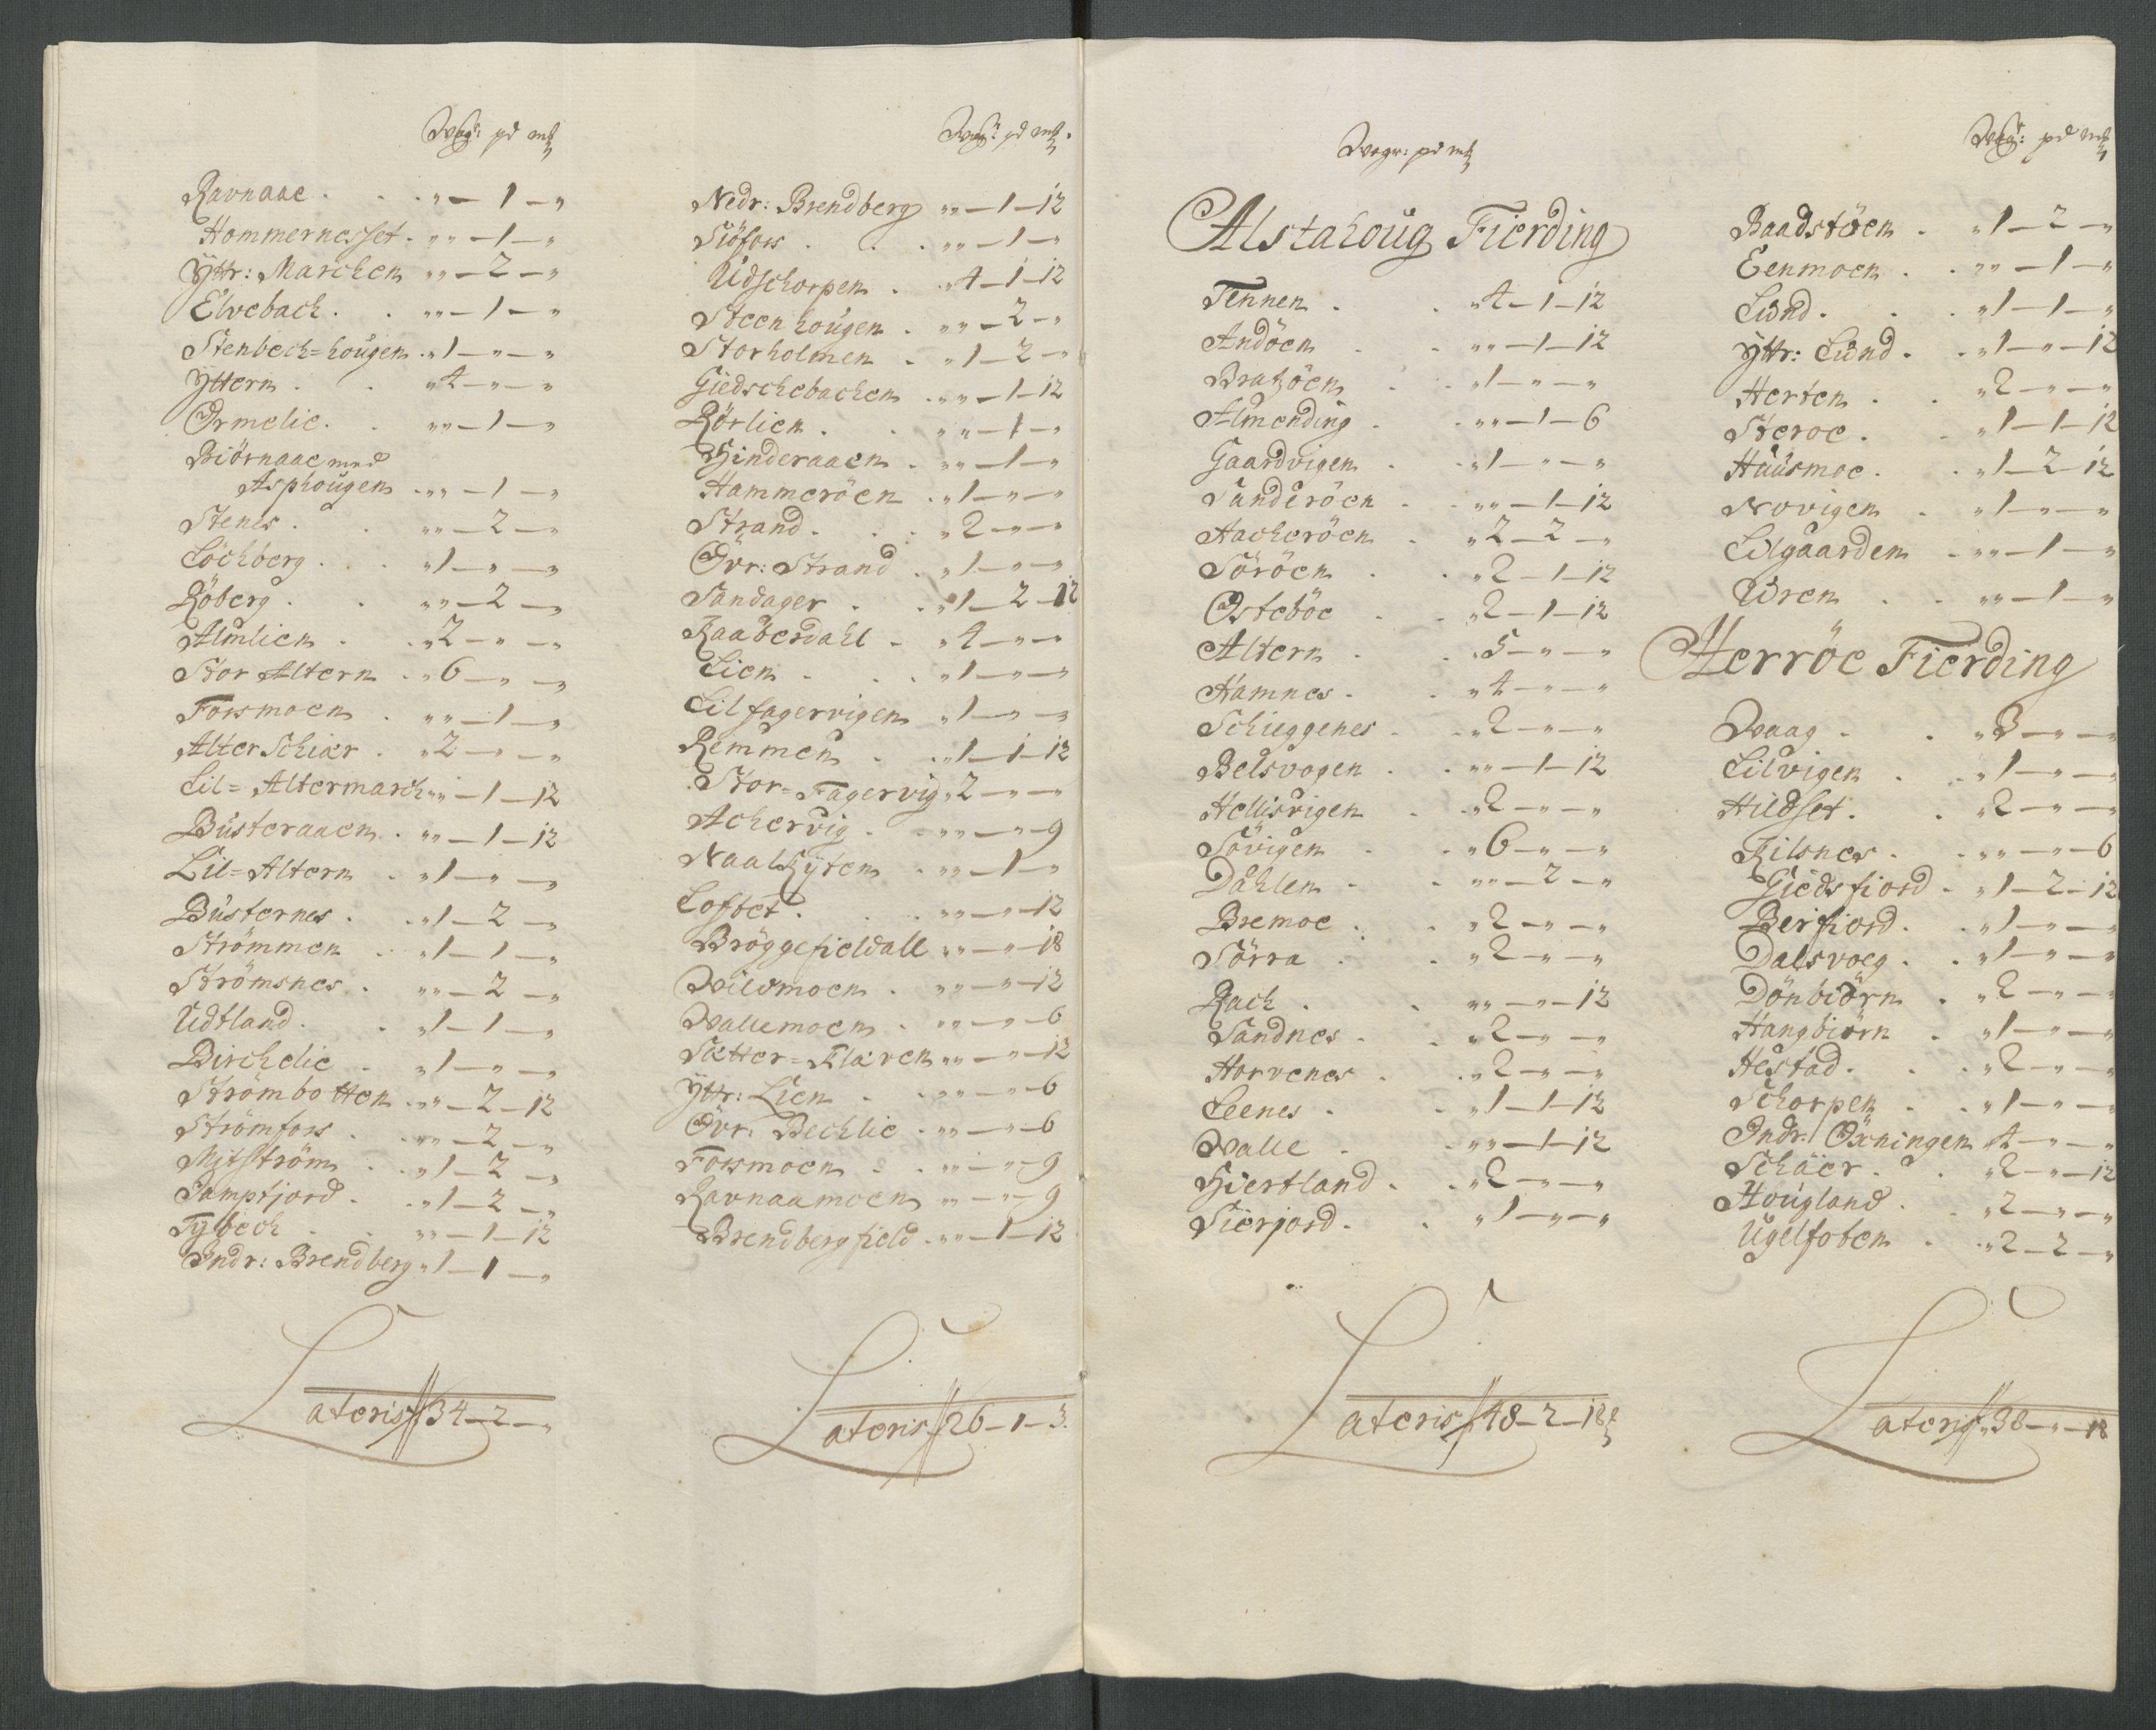 Wogr: pd mk
Ravnaae . . . „ — 1 — „
Hommernesset . „„ — 1 — „
Yttr: Marchen „„ — 2 — „
Elvebach . . „„ — 1 — „
Stenbech=hougen . „1 — „ — „
Yttern . . „4 — „ — „
Ormelie . . „„ — 1 — „
Biörnaae med
Asphougen . „„ — 1 — „
Stenes . . „„ — 2 — „
Löchberg . . . „1 — „ — „
Röberg . . „„ — 2 — „
Almlien . . „2 — „ — „
Stor Altern . „6 — „ — „
Forsmoen . „„ — 1 — „
Alter Schiær . „2 — „ — „
Lil= Altermarch „„ — 1 — 12
Busteraaen . „„ — 1 — 12
Lil= Altern . „1 — „ — „
Busternes . . „1 — 2 — „
Strömmen . „1 — 1 — „
Strömsnes . „„ — 2 — „
Udtland . . „1 — 1 — „
Birchelie . „1 — „ — „
Strömbotten . „„ — 2 — 12
Strömfors . . „„ — 2 — „
Mitström . . „1 — 2 — „
Sampfjord . . „1 — 2 — „
Tylbech . . „„ — 1 — 12
Indr: Brendberg „1 — 1 — „
Lateris 34 — 2 — „
Wogr: pd mk
Nedr: Brendberg „„ — 1 — 12
Siöfors . . . „„ — 1 — „
Udschorpen . „4 — 1 — 12
Steenhougen . „„ — 2 — „
Storholmen . „1 — 2 — „
Giedschebachen . „„ — 1 — 12
Rörlien . . „„ — 1 — „
Hinderaaen . „„ — 1 — „
Hammeröen . „1 — „ — „
Strand . . . „2 — „ — „
Övr: Strand . „1 — „ — „
Sandager . . „1 — 2 — 12
Raaberdahl . „4 — „ — „
Lien . . . „1 — „ — „
Lilfagervigen „1 — „ — „
Remmen . . „1 — 1 — 12
Stor= Fagervig „2 — „ — „
Achervig . . „„ — „ — 9
Naalskyten . „„ — 1 — „
Loftet . . . „„ — „ — 12
Bröggefieldall „„ — „ — 18
Wildmoen . „„ — „ — 12
Wallemoen . „„ — „ — 6
Sætter= Klæven „„ — „ — 12
Yttr: Lien . . „„ — „ — 6
Övr: Bechlie . „„ — „ — 6
Forsmoen . . „„ — „ — 9
Ravnaamoen „„ — „ — 9
Brendbergfield . „„ — 1 — 12
Lateris 26 — 1 — 3.
Wogr: pd mk
Alstahoug Fierding
Tennen . . „4 — 1 — 12
Andöen . . „„ — 1 — 12
Bratzöen . . „1 — „ — „
Almending . . „„ — 1 — 6
Gaardvigen . . „1 — „ — „
Sanderöen . . „„ — 1 — 12
Hacheröen . „2 — 2 — „
Söröen . . „2 — 1 — 12
Osteböe . „2 — 1 — 12
Altern . . „5 — „ — „
Hamnes . . „4 — „ — „
Schieggenes . . „2 — „ — „
Belsvogen . . „„ — 1 — 12
Hellisvigen . . „2 — „ — „
Sövigen . . „6 — „ — „
Dahlen . . „„ — 2 — „
Bremoe . . „2 — „ — „
Sörra . . „2 — „ — „
Rach . . „„ — „ — 12
Sandnes . . „2 — „ — „
Horvenes . . „2 — „ — „
Leenes . . „1 — 1 — 12
Walle . . „„ — 1 — 12
Hiertland . . „2 — „ — „
Sierjord . . „1 — „ — „
Lateris 48 — 2 — 18
Wogr: pd mk
Baadstöen . „1 — 2 — „
Eenmoen . . „„ — 1 — „
Lund . . . „1 — 1 — „
Yttr: Lund . . „1 — „ — 12
Herten . . „2 — „ — „
Steroe . . „1 — 1 — 12
Huusmoe . . „1 — 2 — 12
Novigen . „1 — „ — „
Lilgaarden . „„ — 1 — „
Uren . . „„ — 1 — „
Herröe Fierding
Waag . . „3 — „ — „
Lilvigen . . „1 — „ — „
Hildset . . „2 — „ — „
Kilsnes . . „„ — „ — 6
Giedsfiord . „1 — 2 — 12
Berfiord . . „1 — „ — „
Dalsvoeg . . „1 — „ — „
Dönbiörn . „2 — „ — „
Hangbiörn . „1 — „ — „
Hestad . . . „2 — „ — „
Schorpen . . „1 — „ — „
Indr: Öxningen „4 — „ — „
Schäer . . „2 — „ — 12
Hougland . . „2 — „ — „
Ugelfoten . „2 — 2 — „
Lateris „38 — „ — 18